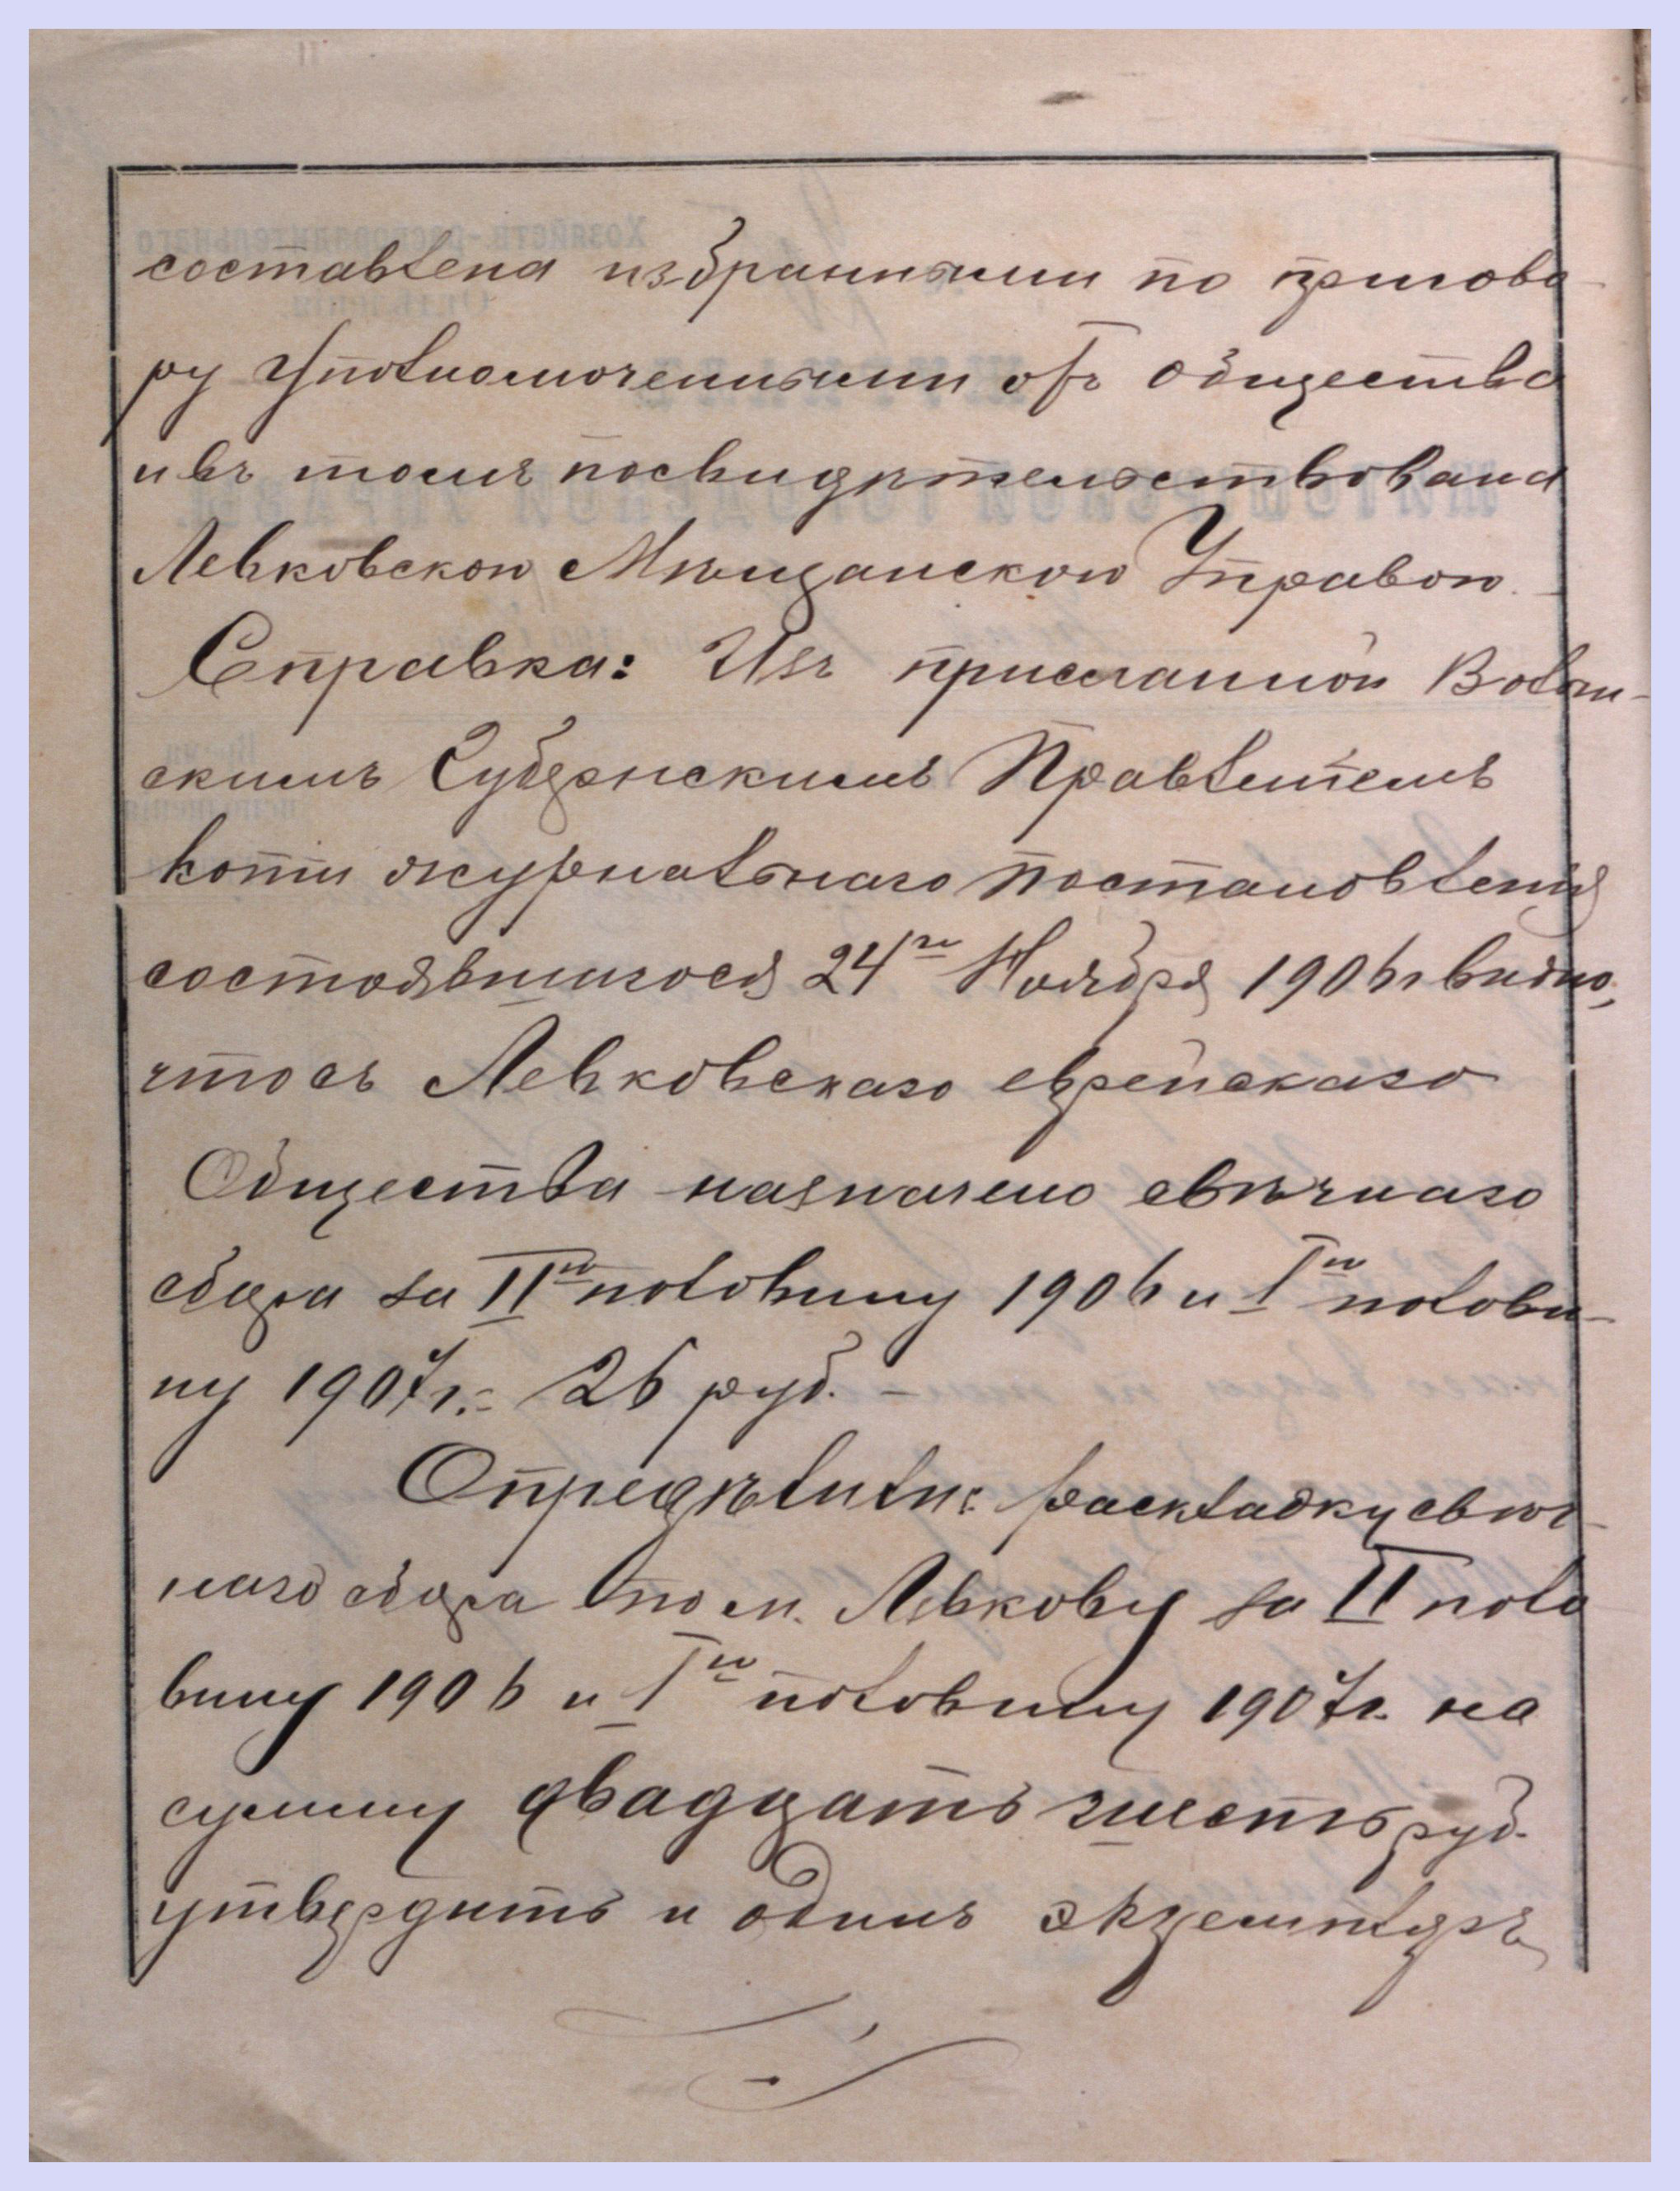 составлена избранными по пригово-
ру Уполномоченными отъ общества
и въ томъ посвидѣтельствована
Левковскою Мѣщанскою Управою.
Справка: Изъ присланной Волын-
скимъ Губернскимъ Правлениемъ
копіи журнальнаго постановленія
состоявшагося 24го Ноября 1906 г видно,
что съ Левковскаго еврейскаго
Общества назначено свѣчнаго
сбора за IIю половину 1906 и Iю полови-
ну 1907 г.- 26 руб. -
Опредѣлили: раскладку свѣч-
наго сбора по м. Левкову за II поло
вину 1906 и Iю половину 1907 г. на
сумму двадцать шесть руб.
утвердить и одинъ экземпляръ